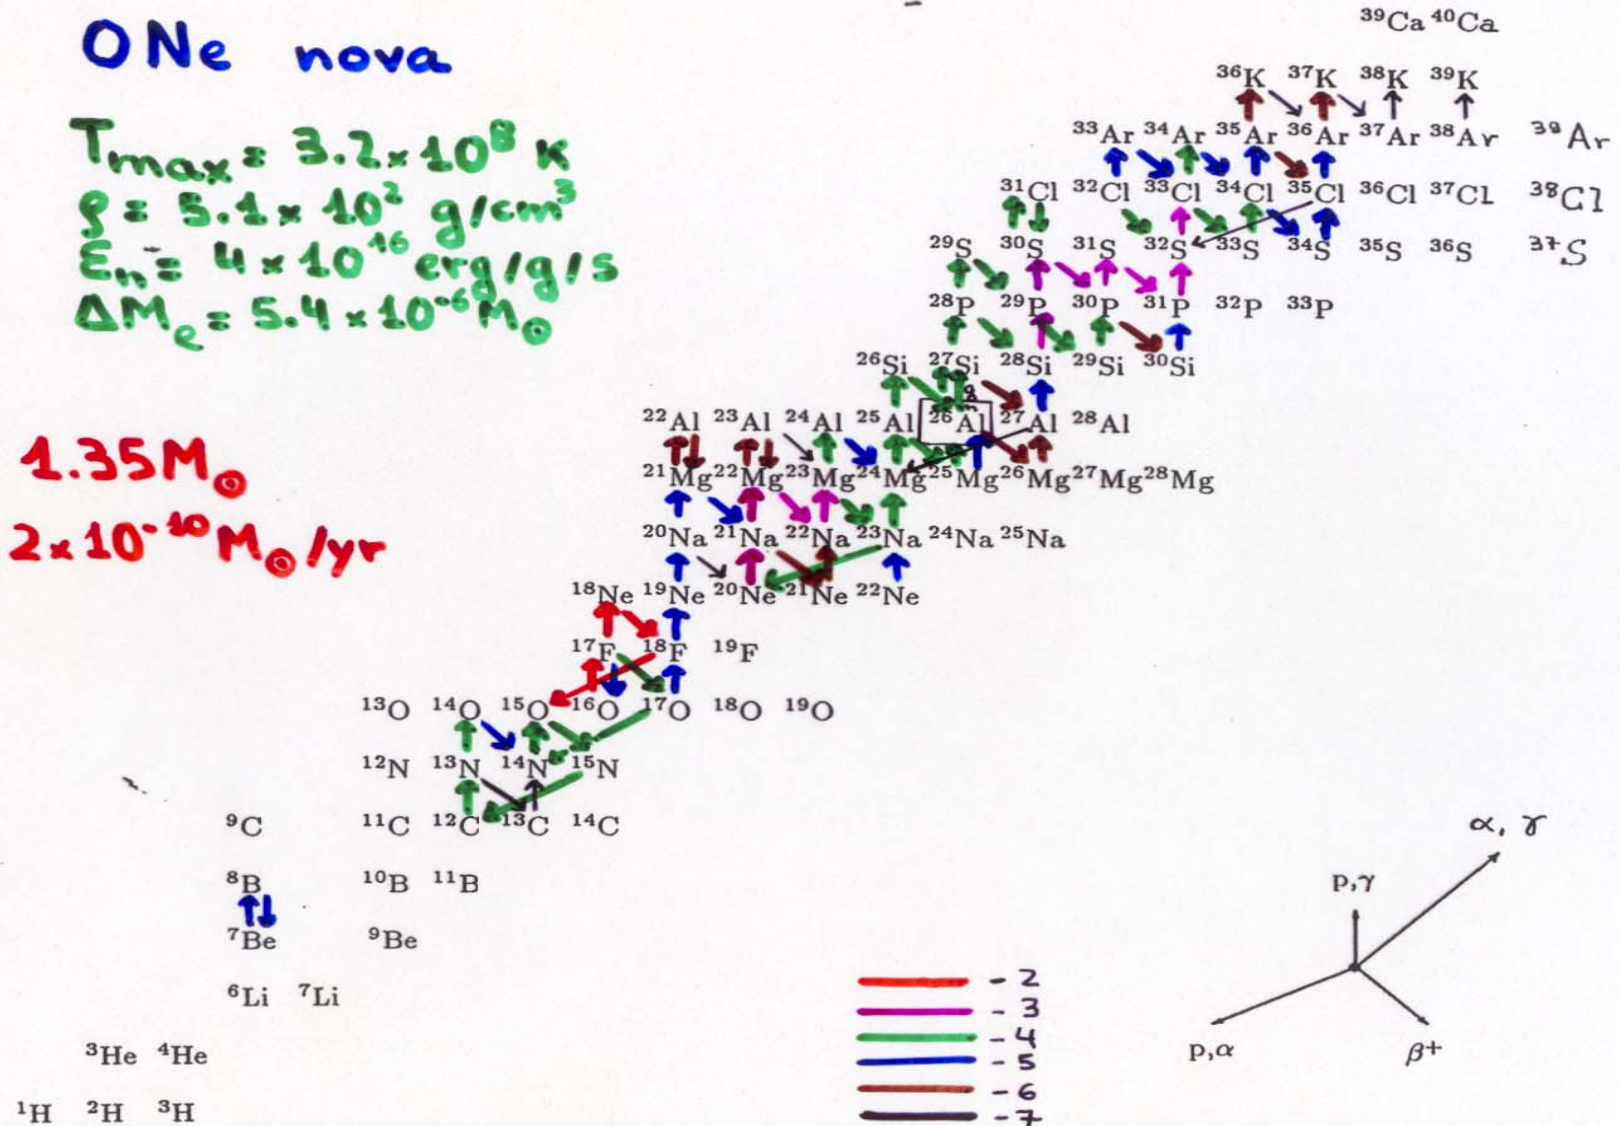 ONe nova
Tmax = 3.2 x 10⁸ K
ρ = 5.1 x 10² g/cm³
εn = 4 x 10¹⁶ erg/g/s
ΔMe = 5.4 x 10⁻⁶ M⊙
1.35 M⊙
2 x 10⁻¹⁰ M⊙/yr
³⁹Ca ⁴⁰Ca
³⁶K ³⁷K ³⁸K ³⁹K
³³Ar ³⁴Ar ³⁵Ar ³⁶Ar ³⁷Ar ³⁸Ar ³⁹Ar
³¹Cl ³²Cl ³³Cl ³⁴Cl ³⁵Cl ³⁶Cl ³⁷Cl ³⁸Cl
²⁹S ³⁰S ³¹S ³²S ³³S ³⁴S ³⁵S ³⁶S ³⁷S
²⁸P ²⁹P ³⁰P ³¹P ³²P ³³P
²⁶Si ²⁷Si ²⁸Si ²⁹Si ³⁰Si
²²Al ²³Al ²⁴Al ²⁵Al ²⁶Al ²⁷Al ²⁸Al
²¹Mg ²²Mg ²³Mg ²⁴Mg ²⁵Mg ²⁶Mg ²⁷Mg ²⁸Mg
²⁰Na ²¹Na ²²Na ²³Na ²⁴Na ²⁵Na
¹⁸Ne ¹⁹Ne ²⁰Ne ²¹Ne ²²Ne
¹⁷F ¹⁸F ¹⁹F
¹³O ¹⁴O ¹⁵O ¹⁶O ¹⁷O ¹⁸O ¹⁹O
¹²N ¹³N ¹⁴N ¹⁵N
⁹C ¹¹C ¹²C ¹³C ¹⁴C
⁸B ¹⁰B ¹¹B
⁷Be ⁹Be
⁶Li ⁷Li
³He ⁴He
¹H ²H ³H
- 2
- 3
- 4
- 5
- 6
- 7
α, γ
p,γ
p,α
β⁺